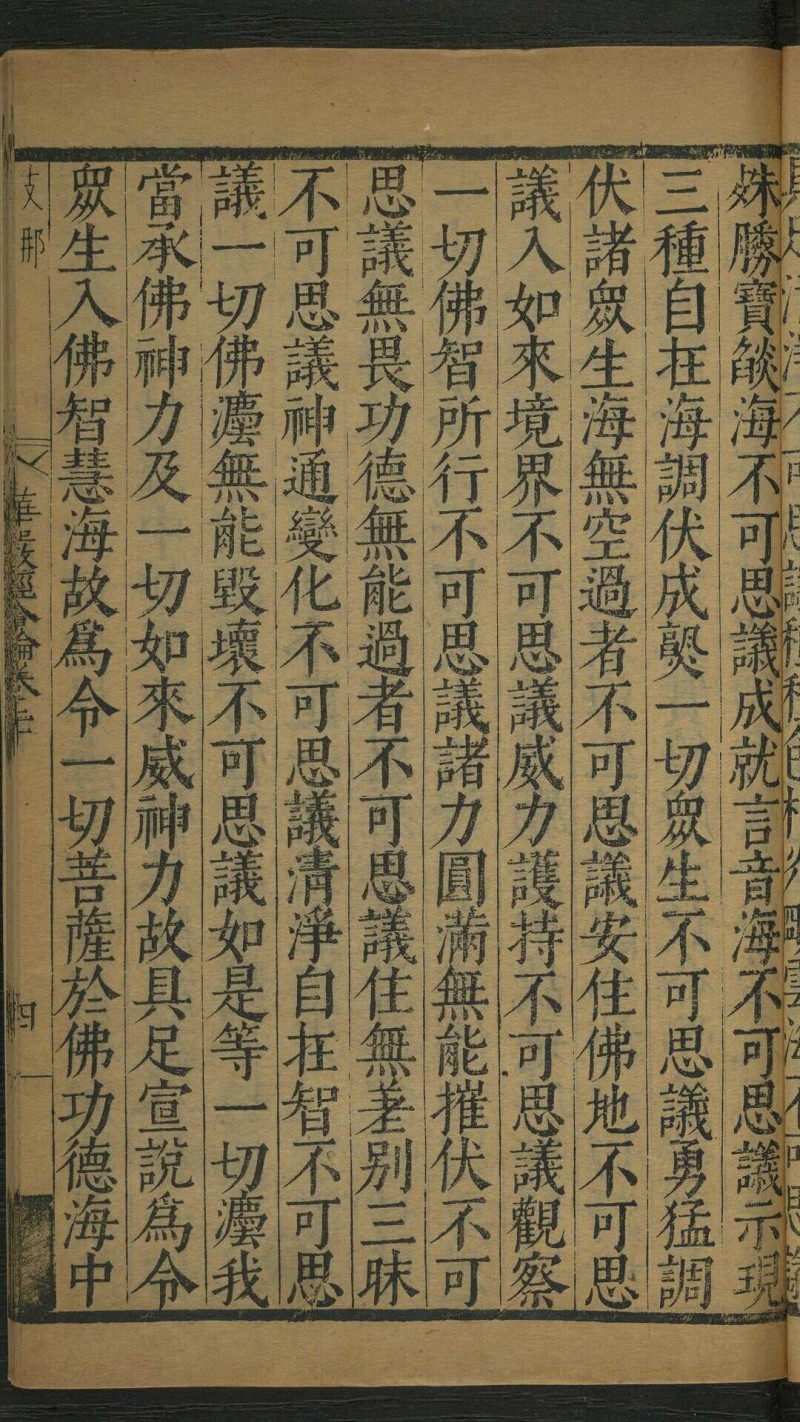 殊勝寶燄海不可思議成就言音海不可思議示現
三種自在海調伏成熟一切眾生不可思議勇猛調
伏諸眾生海無空過者不可思議安住佛地不可思
議入如來境界不可思議威力護持不可思議觀察
一切佛智所行不可思議諸力圓滿無能摧伏不可
思議無畏功德無能過者不可思議住無差别三昧
不可思議神通變化不可思議清淨自在智不可思
議一切佛灋無能毀壞不可思議如是等一切灋我
當承佛神力及一切如來威神力故具足宣說爲令
眾生入佛智慧海故爲令一切菩薩於佛功德海中
支那
華嚴經合論卷
四